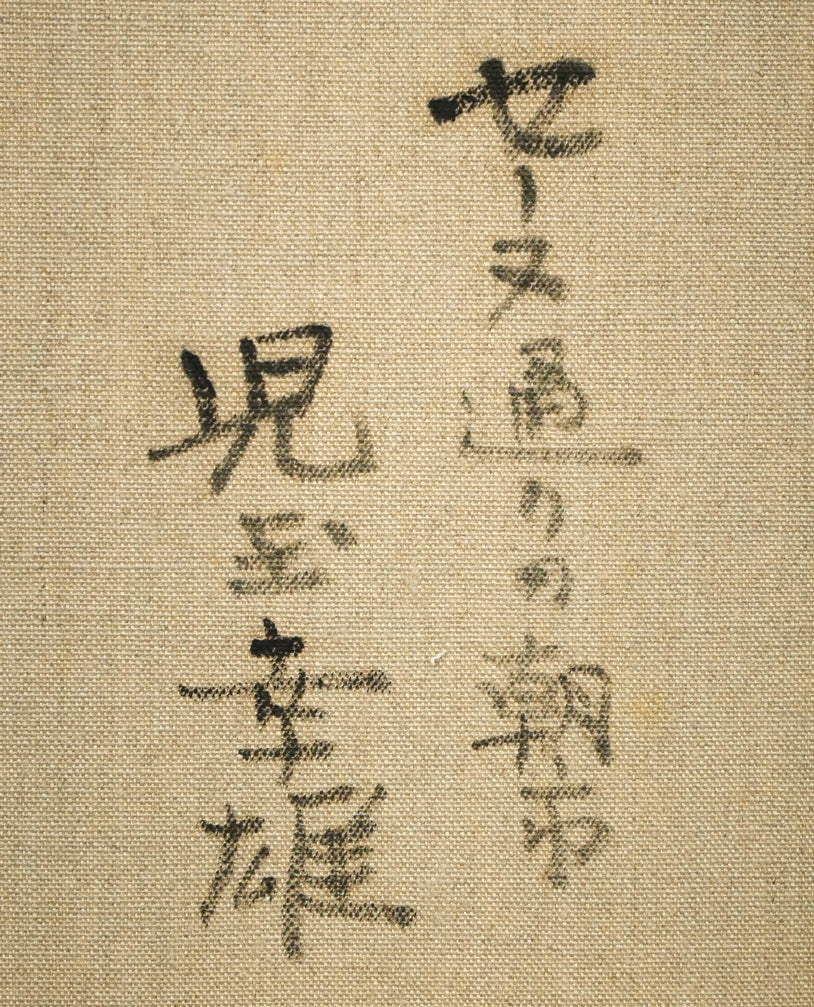 セーヌ通りの朝市
児玉幸雄